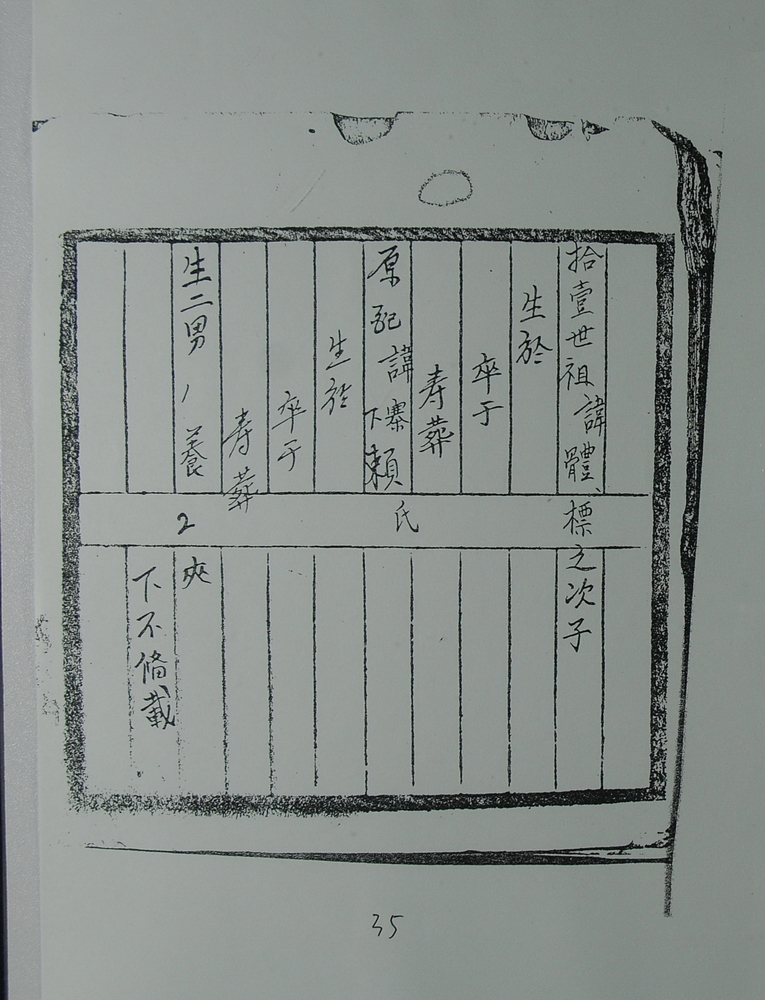 拾壹世祖諱體、標之次子
生於
卒于
寿葬
原配諱下寨賴氏
生於
卒于
寿葬
生二男 1 養 2 夾
下不俻載
35